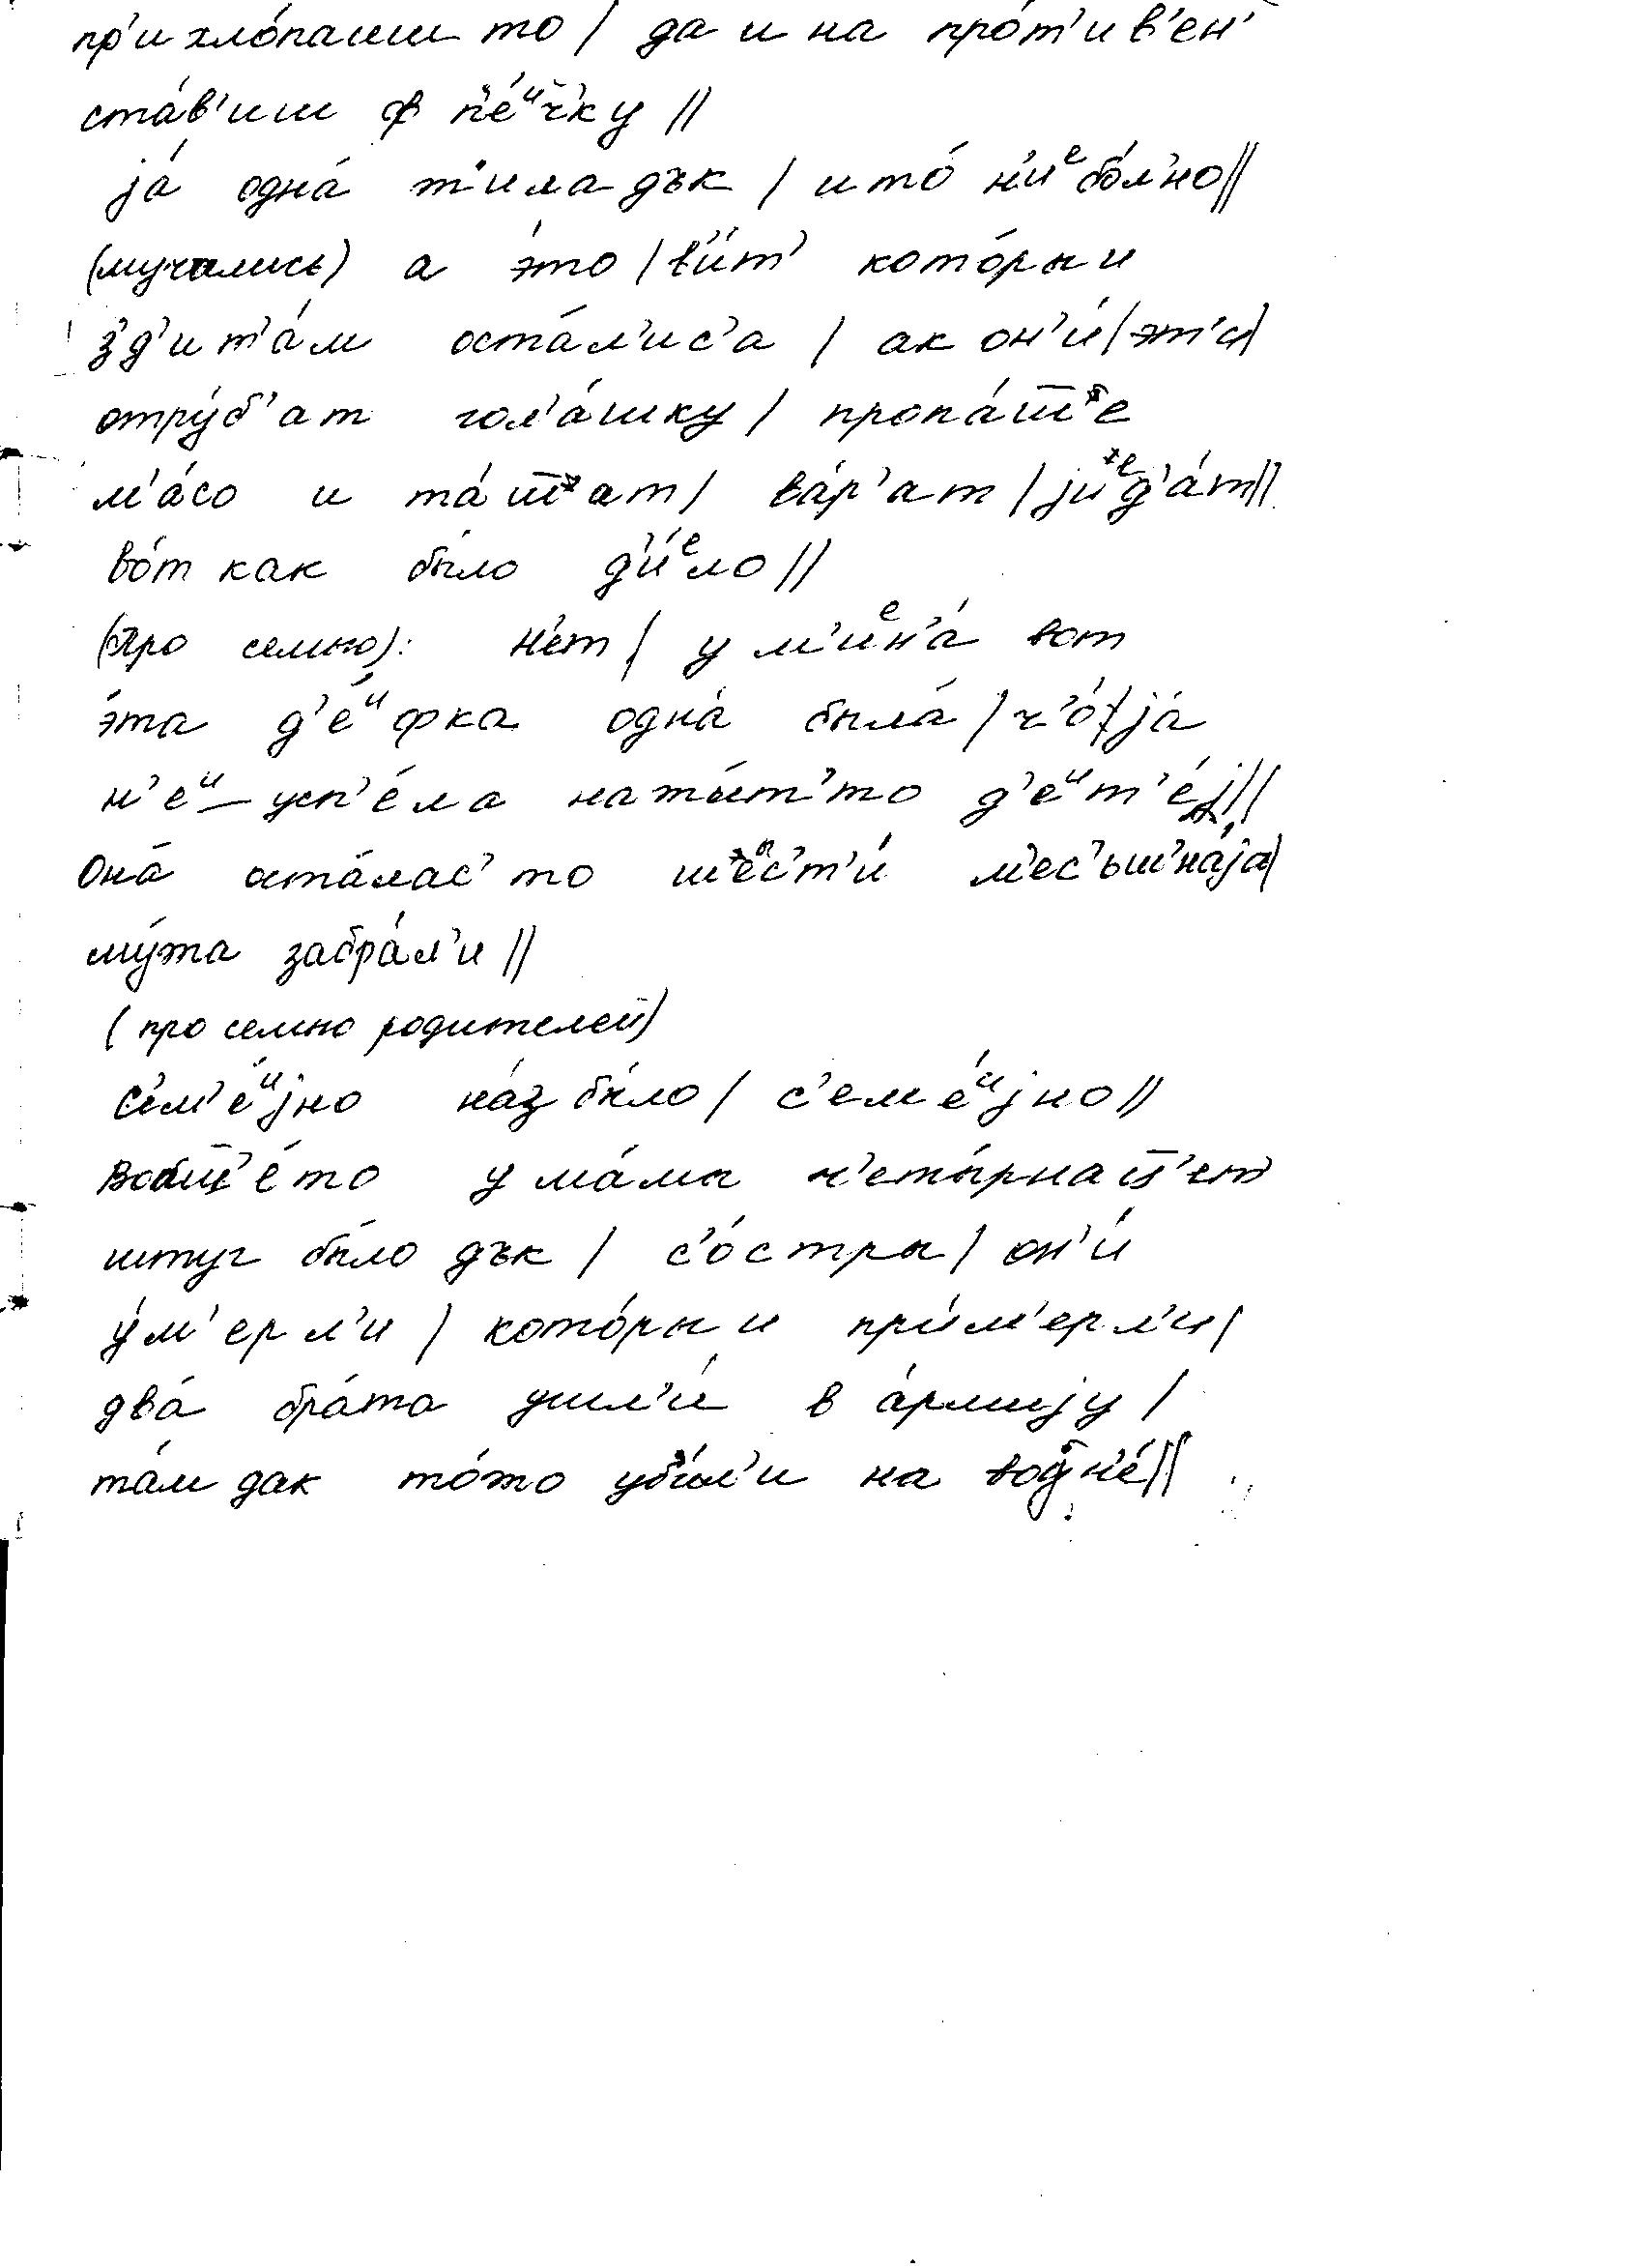 пр'ихло́паиш то / да и на про́т'ив'ен'
ста́в'иш ф п'е́ич'ку //
jа́ одна́ т'ила дък / што́ н'иебо́л'но //
(мучились) а э́то / в'и́т' кото́рыи
з'д'ит'а́м оста́л'ис'а / ак он'и́ / эт'и /
отру́б'ат гол'а́шку / пропа́ш̅е
м'а́со и та́ш̅ат / ва́р'ат / jиед'а́т //
во́т как бы́ло д'и́ело //
(про семью): н'ет / у м'иен'а́ вот
э́та д'е́ифка одна́ была́ / ч'о́ / jа́
н'еи‿усп'е́ла нажы́т'то д'еит'е́j //
Она́ оста́лас' то шест'и́ м'ес'ьш'на́jа /
му́жа забра́л'и //
(про семью родителей)
с'ем'е́иjно на́з бы́ло / с'еме́иjно //
вобш̅'е́то у ма́мы ч'еты́рнац̅'ет
штуг бы́ло дък / с'о́стры / он'и́
у́м'ерл'и / кото́рыи при́м'ерл'и /
два́ бра́та ушл'и́ в а́рмиjу /
та́м дак то́жо уби́л'и на воjн'е́ //